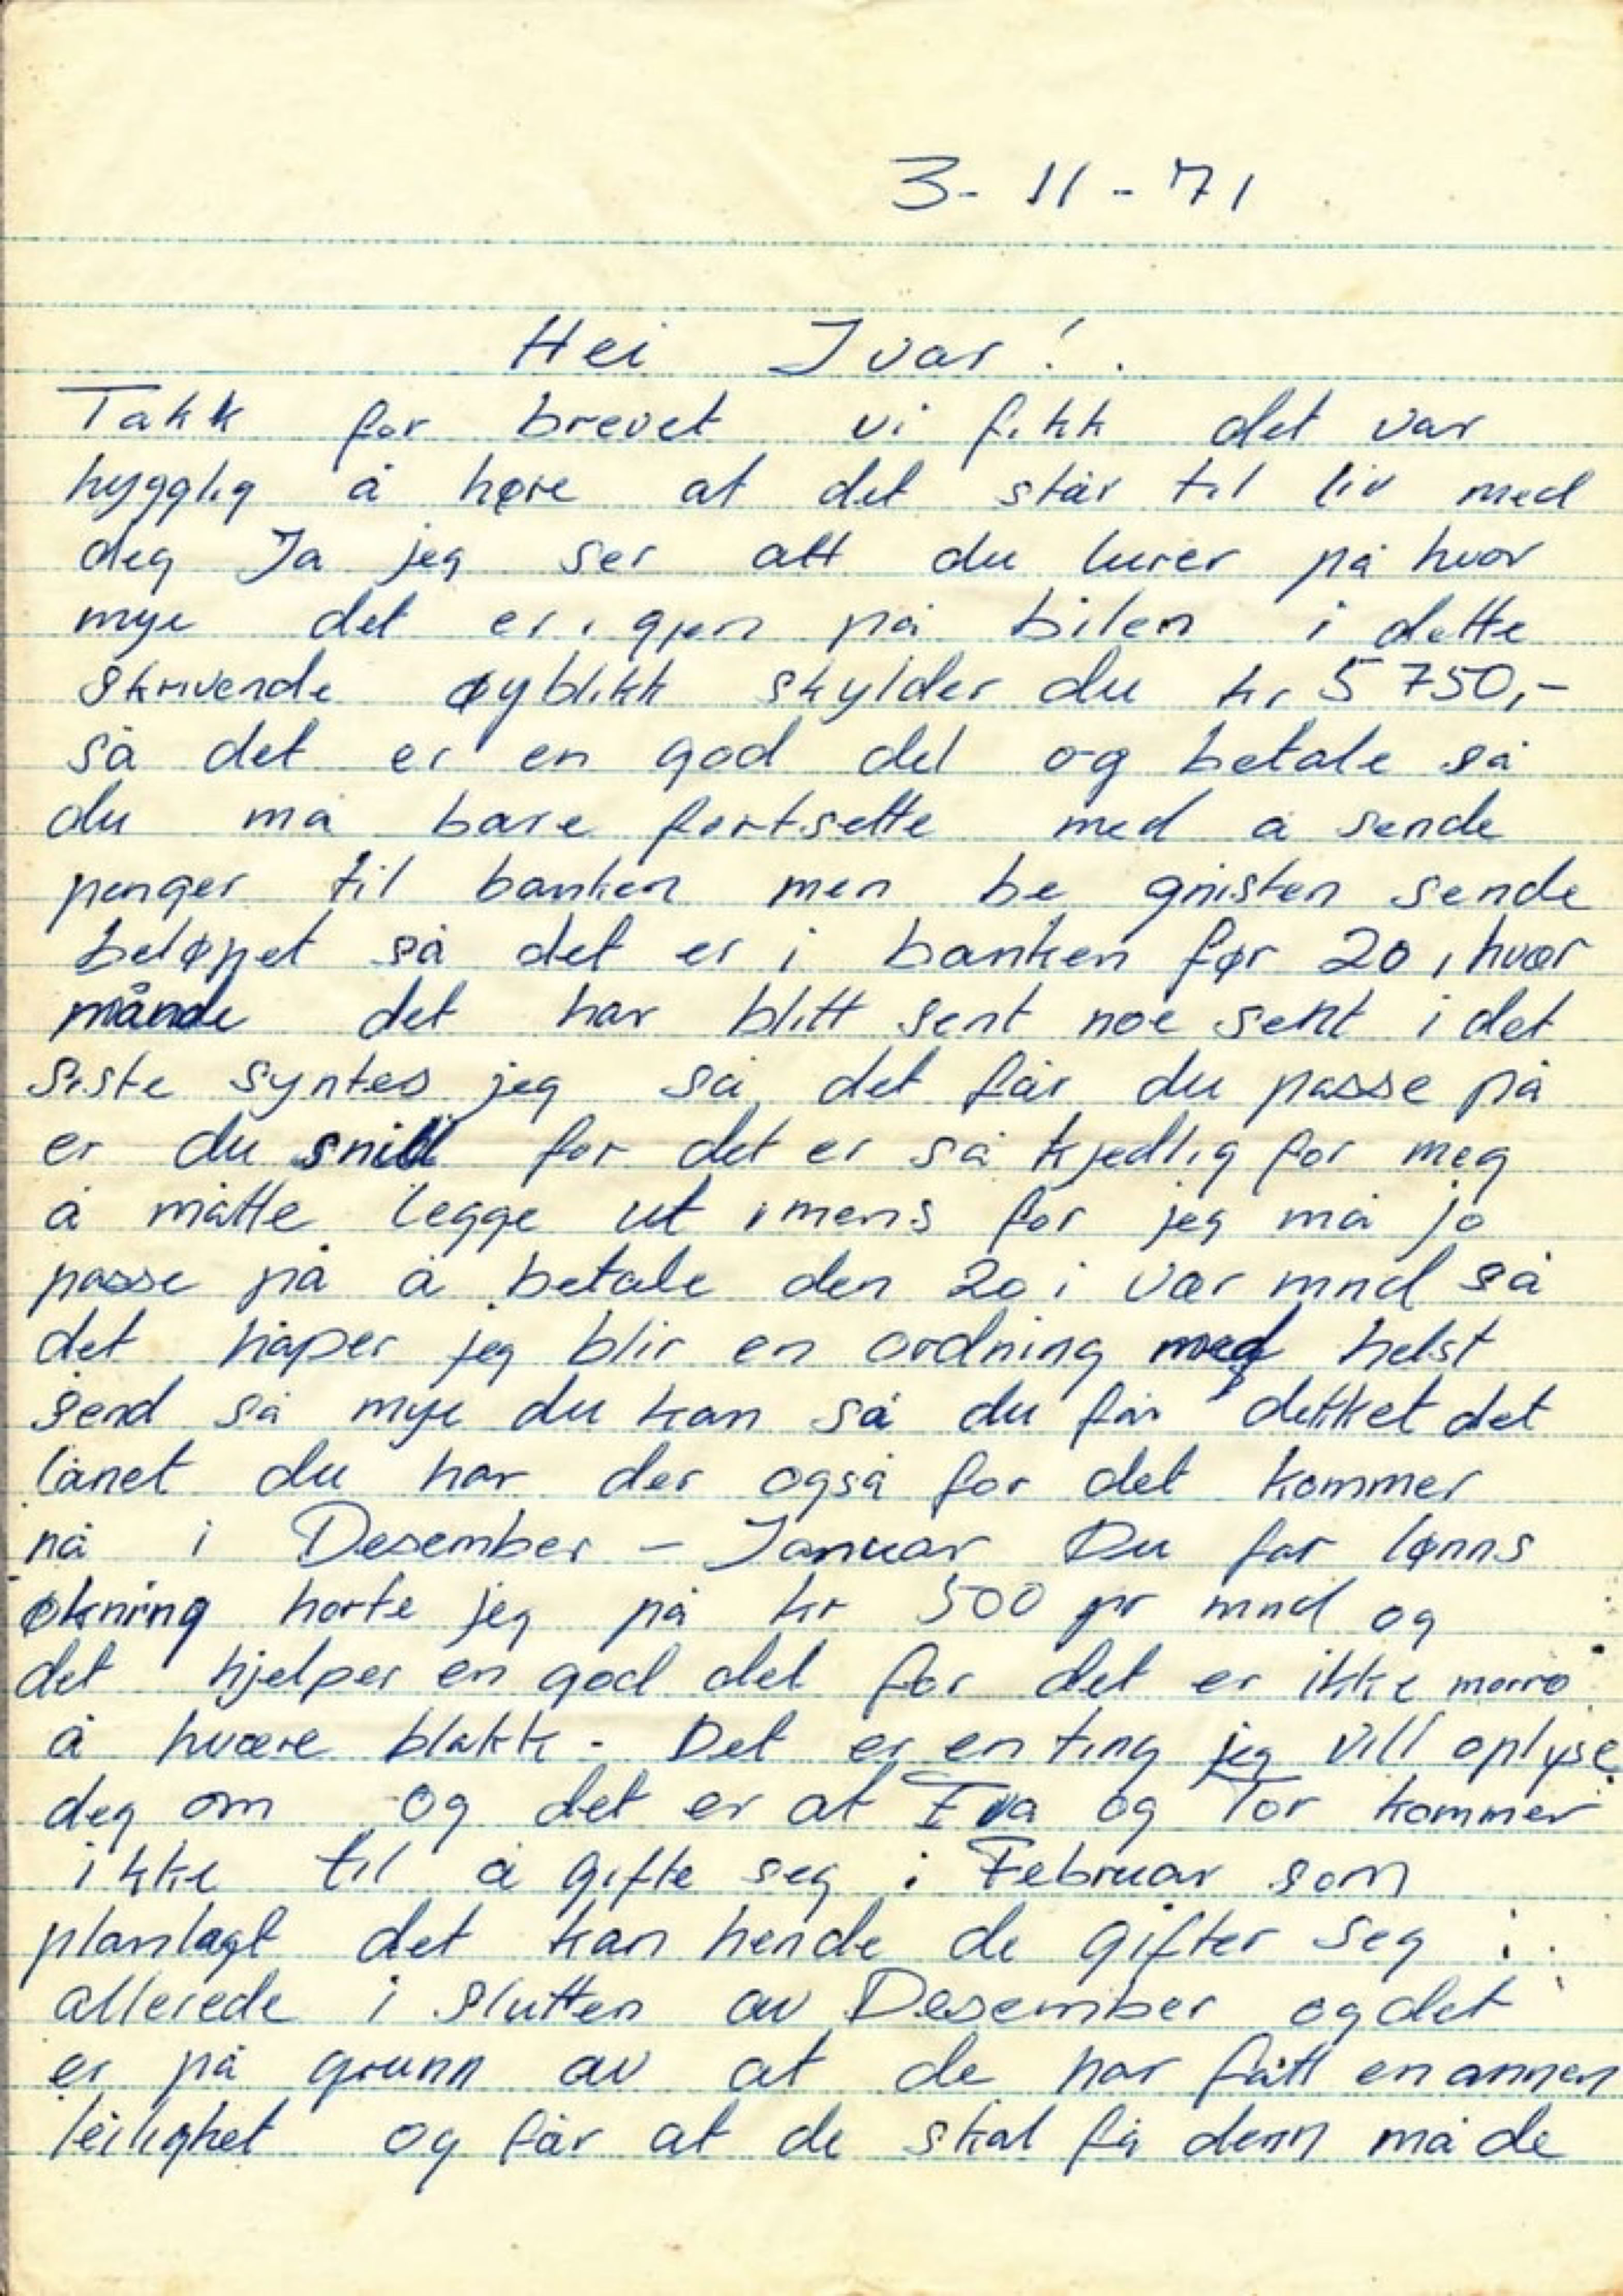 3-11-71
Hei Ivar!.
Takk for brevet vi fikk det var
hygglig å høre at det står til liv med
deg Ja jeg ser att du lurer på hvor
mye det er igjen på bilen i dette
skrivende øyblikk skylder du kr 5750,-
så det er en god del og betale så
du må bare fortsette med å sende
penger til banken men be gnisten sende
beløppet så det er i banken før 20 i hvær
månde det har blitt sent noe sent i det
siste syntes jeg så det får du passe på
er du snill for det er så kjedlig for meg
å måtte legge ut imens for jeg må jo
passe på å betale den 20 i vær mnd så
det håper jeg blir en ordning med helst
send så mye du kan så du får dekket det
lånet du har der også for det kommer
nå i Desember - Januar Du får lønns
økning horte jeg på kr 500 pr mnd og
det hjelper en god del for det er ikke morro
å hvære blakk. Det er en ting jeg vill oplyse
deg om og det er at Eva og Tor kommer
ikke til å gifte seg i Februar som
planlagt det kan hende de gifter seg i
allerede i slutten av Desember og det
er på grunn av at de har fått en annen
leilighet og får at de skal få denn må de